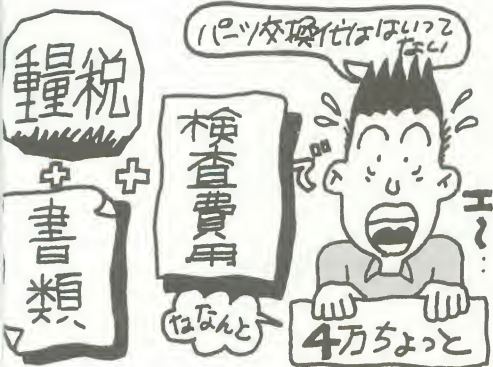 重量税
+
書類
+
検査費用
で
パーツ交換代ははいって
ない
エ〜…
なななんと
4万ちょっと